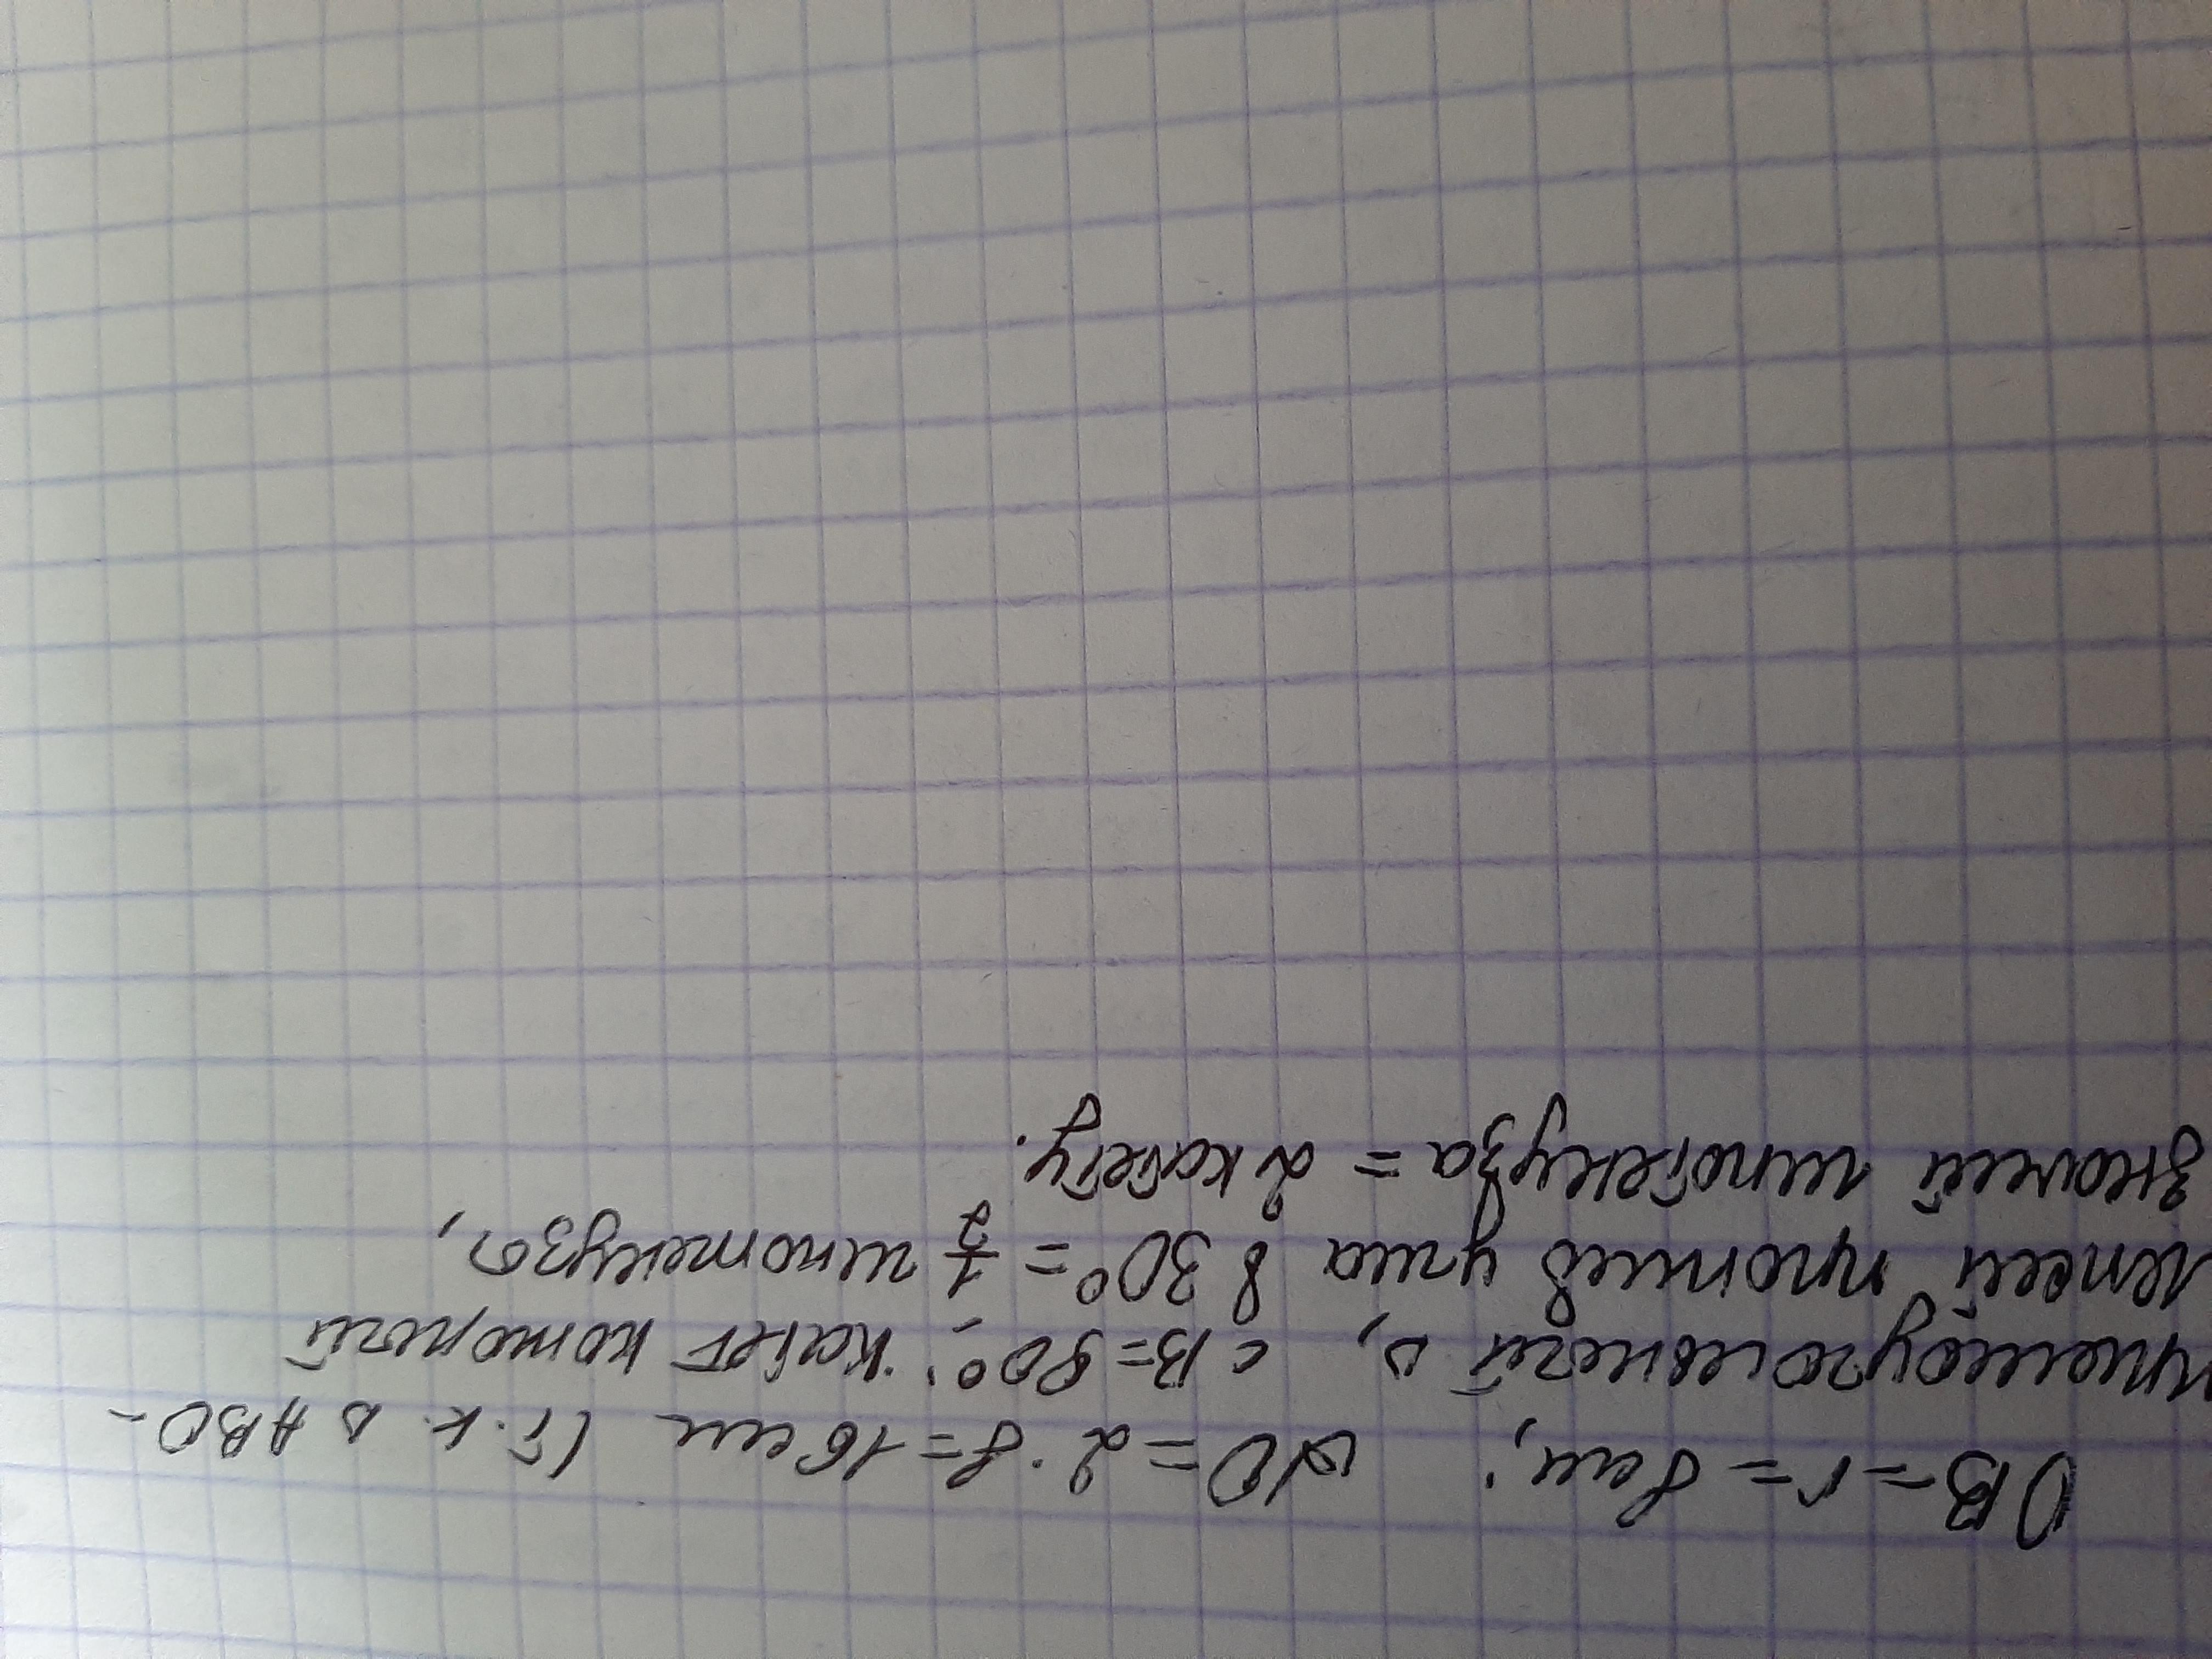 OB = r = 8 см; AO = 2·8 = 16 см (т.к. Δ ABO –
прямоугольный Δ, <B = 90°; катет который
лежей против угла в 30° = 1/2 гипотенузы,
значей гипотенуза = 2 катету.